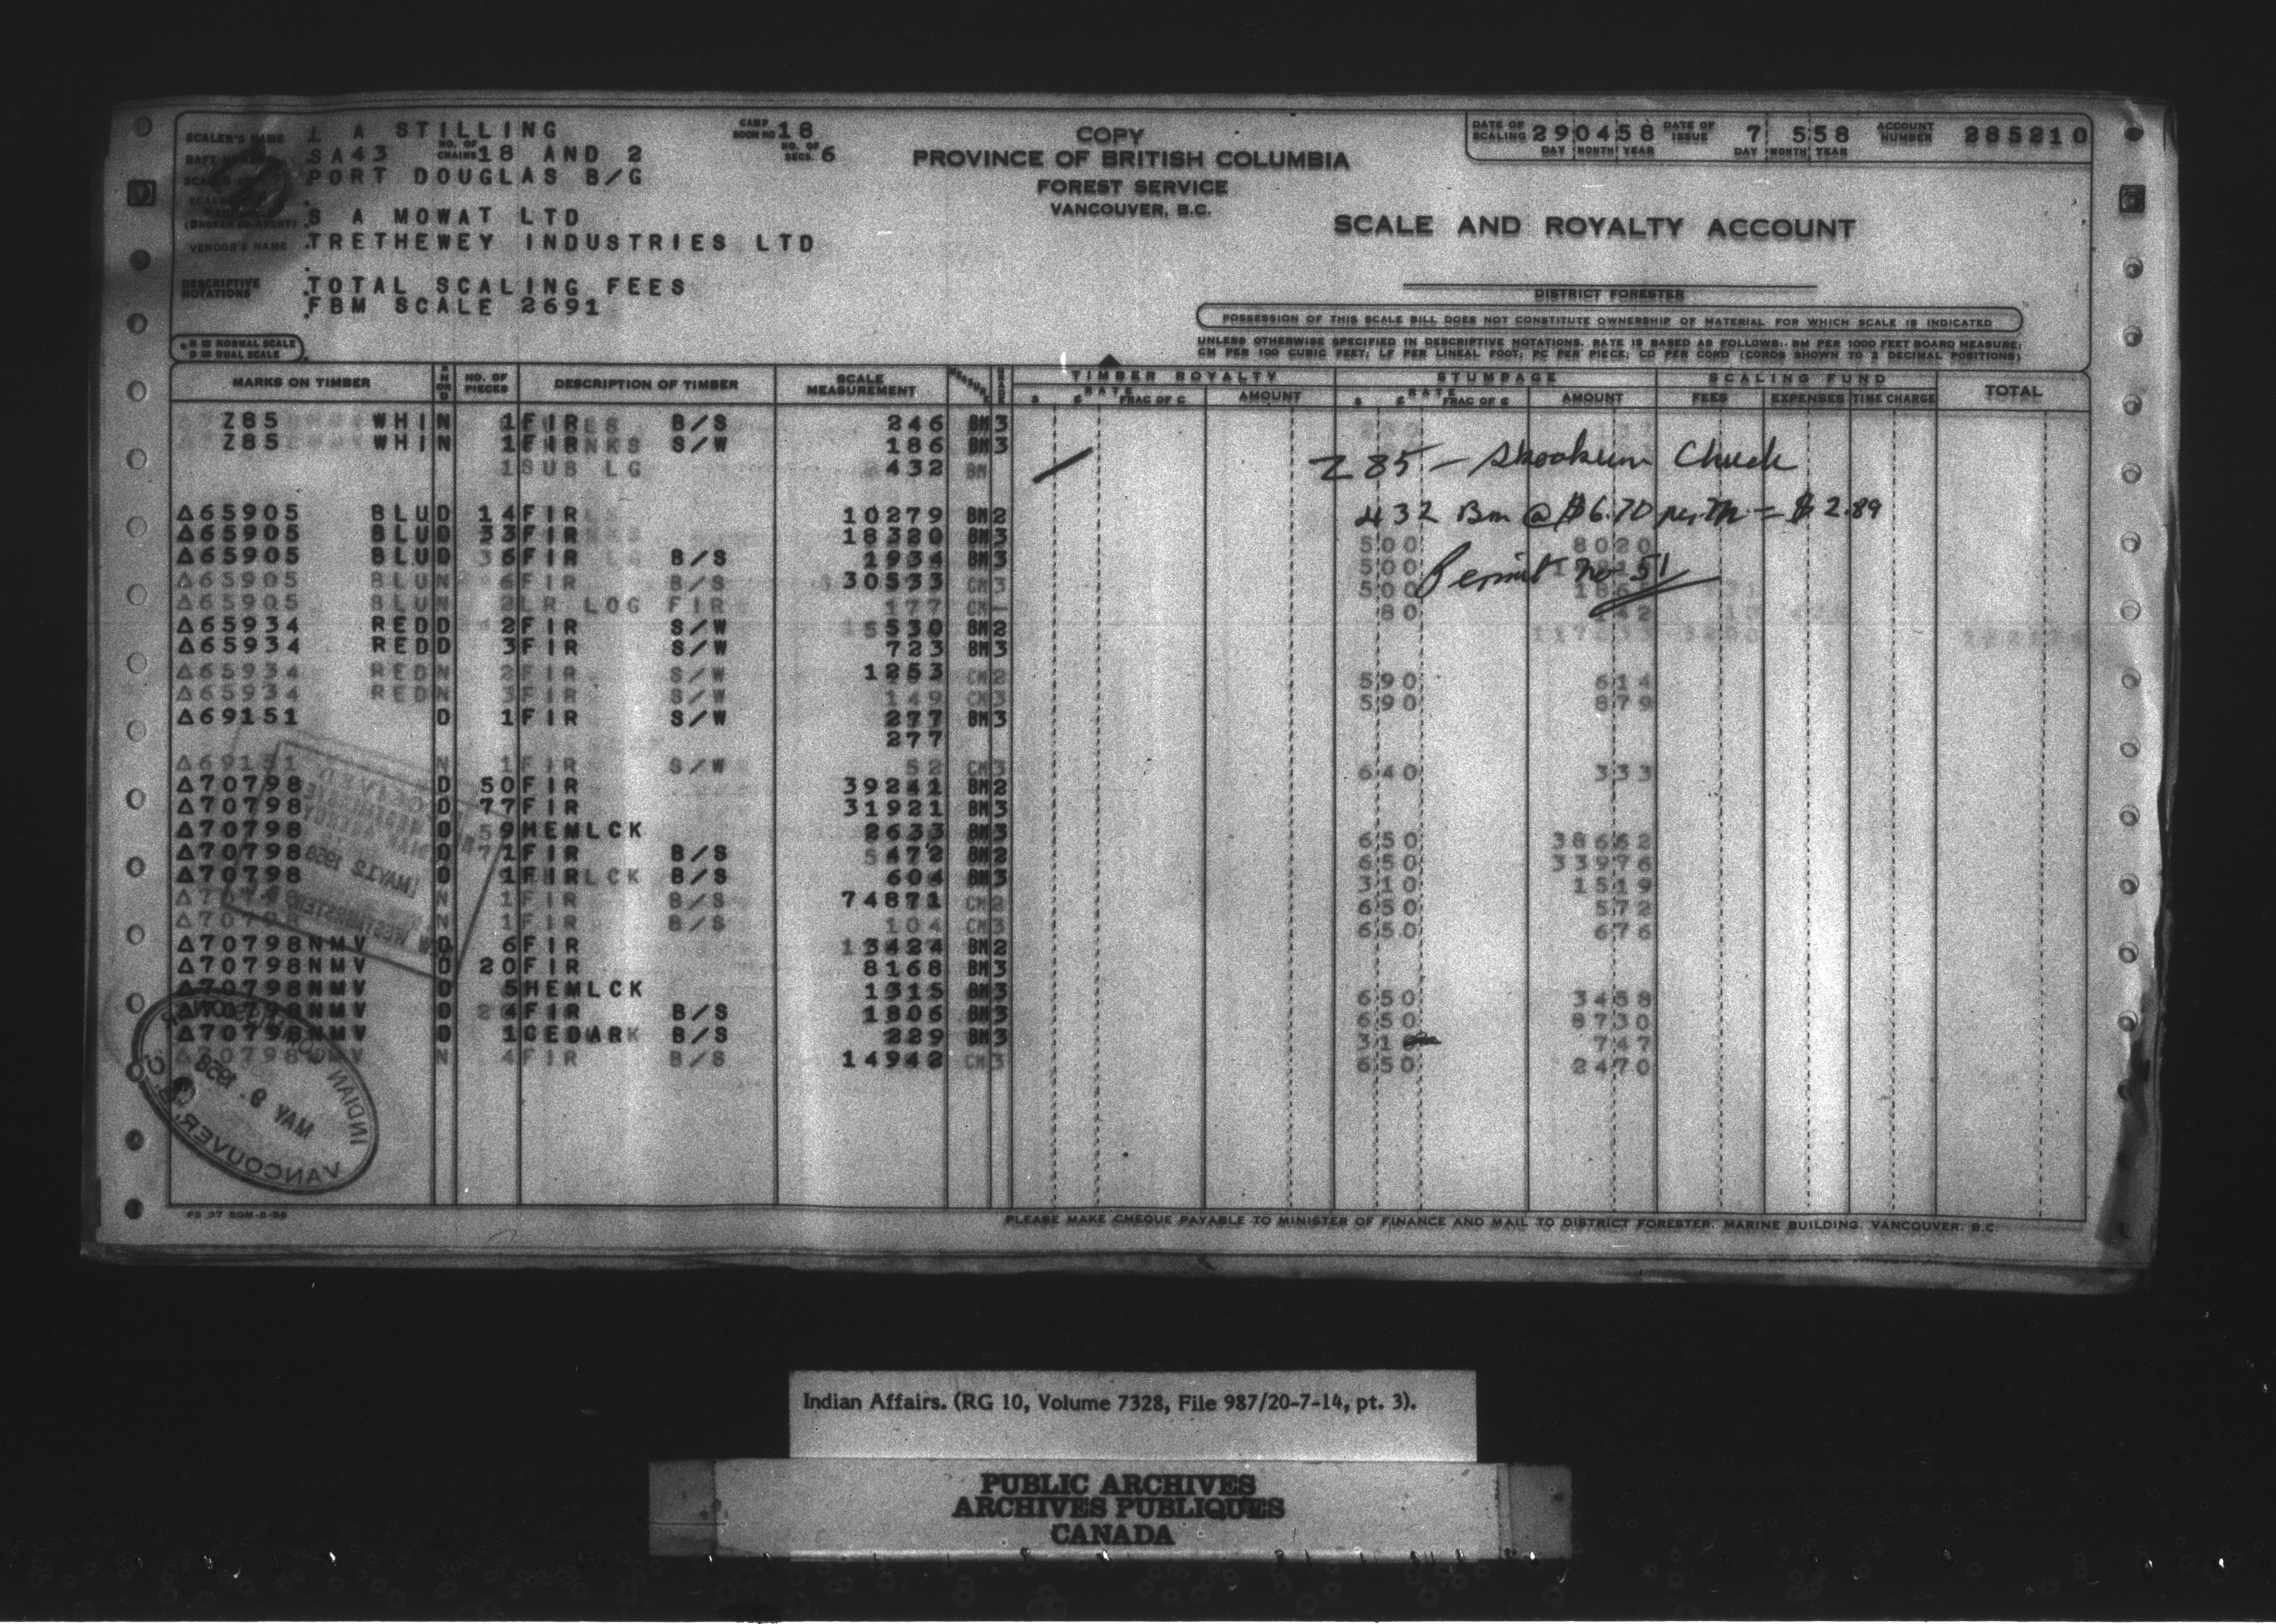 SCALER'S NAME L A STILLING CAMP BOOM NO 18
SA43 NO. OF CHAINS 18 AND 2 NO. OF SECS. 6
PORT DOUGLAS B/G
(BROKER OR AGENT) S A MOWAT LTD
VENDOR'S NAME TRETHEWEY INDUSTRIES LTD
DESCRIPTIVE NOTATIONS TOTAL SCALING FEES
FBM SCALE 2691
N = NORMAL SCALE
D = DUAL SCALE
COPY
PROVINCE OF BRITISH COLUMBIA
FOREST SERVICE
VANCOUVER, B.C.
DATE OF SCALING 290458 DATE OF ISSUE 7 558 ACCOUNT NUMBER 285210
DAY MONTH YEAR DAY MONTH YEAR
SCALE AND ROYALTY ACCOUNT
DISTRICT FORESTER
POSSESSION OF THIS SCALE BILL DOES NOT CONSTITUTE OWNERSHIP OF MATERIAL FOR WHICH SCALE IS INDICATED
UNLESS OTHERWISE SPECIFIED IN DESCRIPTIVE NOTATIONS. RATE IS BASED AS FOLLOWS:. BM PER 1000 FEET BOARD MEASURE;
CM PER 100 CUBIC FEET; LF PER LINEAL FOOT; PC PER PIECE; CD PER CORD (CORDS SHOWN TO 2 DECIMAL POSITIONS)
MARKS ON TIMBER NO. OF PIECES DESCRIPTION OF TIMBER SCALE MEASUREMENT TIMBER ROYALTY STUMPAGE SCALING FUND TOTAL
RATE FRAC OF ¢ AMOUNT RATE FRAC OF ¢ AMOUNT FEES EXPENSES TIME CHARGE
Z85 WHI N 1 FIR B/S 246 BM 3
Z85 WHI N 1 FIR S/W 186 BM 3
1 SUB LG 432 BM
Z 85 - Skookum Chuck
△65905 BLU D 14 FIR 10279 BM 2
432 Bm @ $6.70 per M = $2.89
△65905 BLU D 33 FIR 18320 BM 3
500 8020
△65905 BLU D 6 FIR B/S 1934 BM 3
500
Permit no 51
△65905 BLU N 6 FIR B/S 30533 CM 3
500
△65905 BLU N 2 LR LOG FIR 177 CM
80 142
△65934 RED D 2 FIR S/W 530 BM 2
△65934 RED D 3 FIR S/W 723 BM 3
△65934 RED N 2 FIR S/W 1253 CM 2
590 614
△65934 RED N 3 FIR S/W 149 CM 3
590 879
△69151 D 1 FIR S/W 277 BM 3
277
△69151 N 1 FIR S/W 52 CM 3
640 333
△70798 D 50 FIR 39241 BM 2
△70798 D 77 FIR 31921 BM 3
△70798 D 9 HEMLCK 2633 BM 3
650 38662
△70798 D 1 FIR B/S 472 BM 2
650 33976
△70798 D 1 FIR B/S 604 BM 3
310 1519
N 1 FIR B/S 74871 CM 2
650 572
△70798 N 1 FIR B/S 104 CM 3
650 676
△70798NMV D 6 FIR 3424 BM 2
△70798NMV D 20 FIR 8168 BM 3
△70798NMV D 5 HEMLCK 1315 BM 3
650 3458
△70798NMV D 4 FIR B/S 1806 BM 3
650 8730
△70798NMV D 1 CEDAR B/S 229 BM 3
310 747
△70798NMV N 4 FIR B/S 14942 CM 3
650 2470
INDIAN
MAY 9. 1958
VANCOUVER, B.C.
PLEASE MAKE CHEQUE PAYABLE TO MINISTER OF FINANCE AND MAIL TO DISTRICT FORESTER. MARINE BUILDING. VANCOUVER. B.C.
Indian Affairs. (RG 10, Volume 7328, File 987/20-7-14, pt. 3).
PUBLIC ARCHIVES
ARCHIVES PUBLIQUES
CANADA